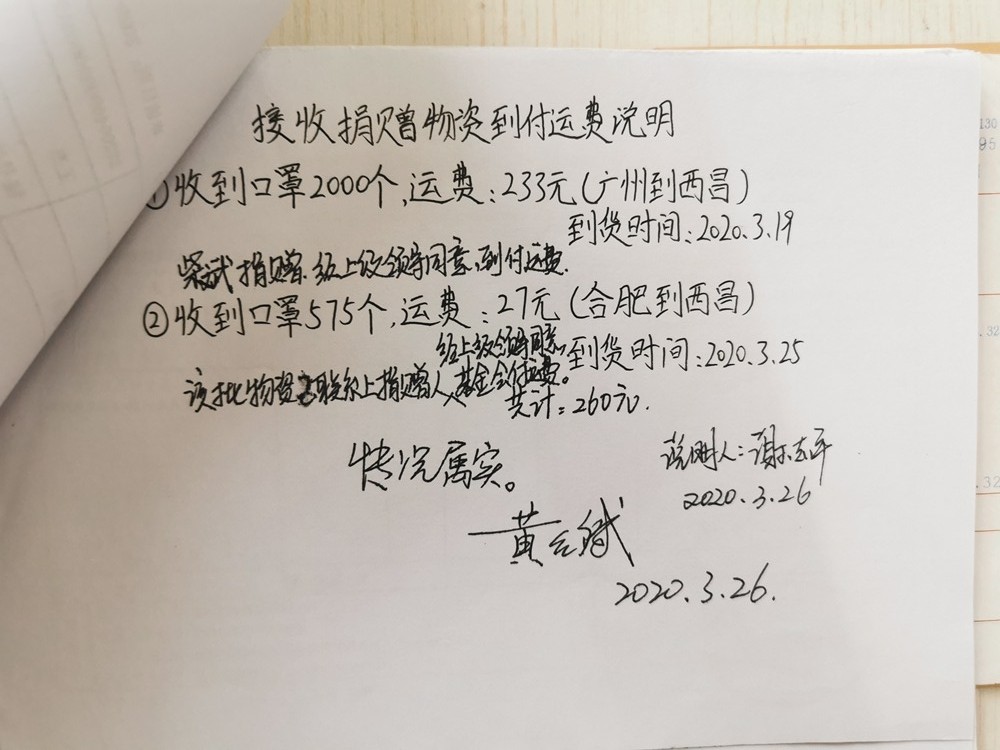 接收捐赠物资到付运费说明
①收到口罩2000个,运费:233元(广州到西昌)
到货时间:2020.3.19
紧武捐赠.经上级领导同意,到付运费.
②收到口罩575个,运费:27元(合肥到西昌)
经上级领导同意,
到货时间:2020.3.25
该批物资联系上捐赠人,基金会付运费。
共计:260元.
情况属实。
说明人:谢志平
2020.3.26
黄
2020.3.26.